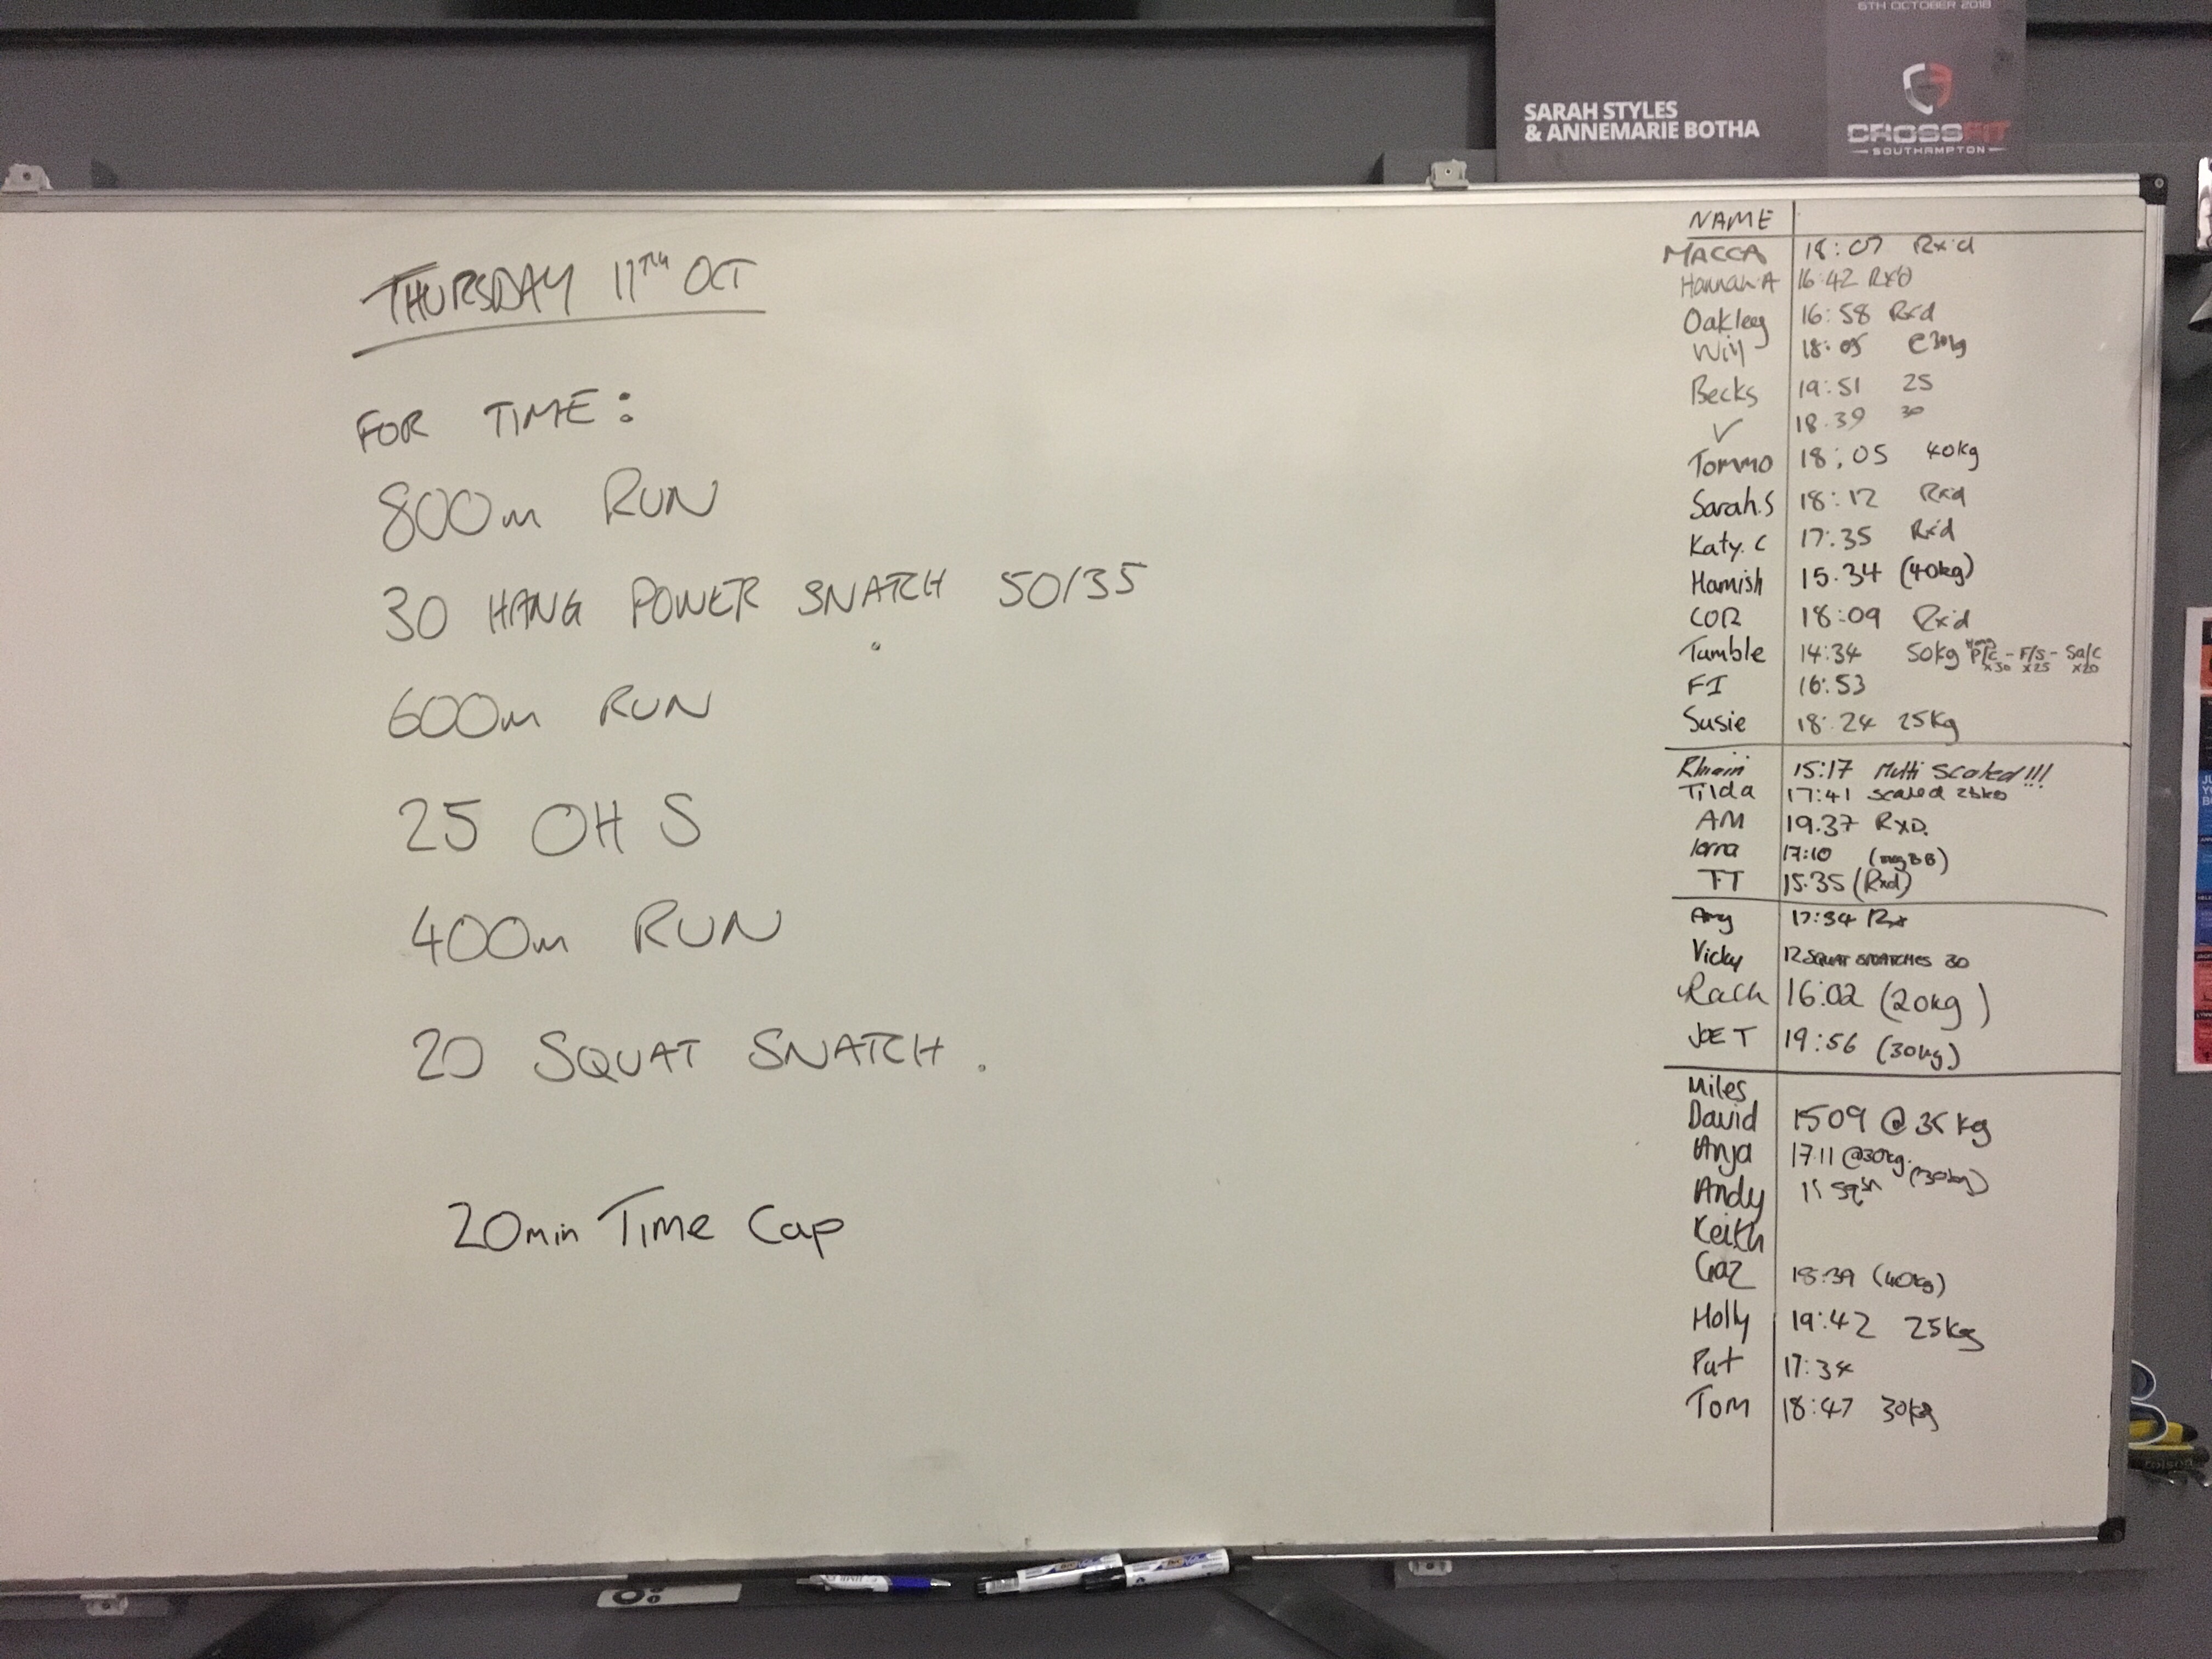 6TH OCTOBER 2018
SARAH STYLES
& ANNEMARIE BOTHA
CROSSFIT
SOUTHAMPTON
THURSDAY 11TH OCT
FOR TIME:
800m RUN
30 HANG POWER SNATCH 50/35
600m RUN
25 OHS
400m RUN
20 SQUAT SNATCH.
20min Time Cap
NAME
MACCA 18:07 Rx'd
Hannah.A 16:42 Rx'd
Oakley 16:58 Rxd
Will 18:05 @30kg
Becks 19:51 25
V 18.39 30
Tommo 18:05 40kg
Sarah.S 18:12 Rxd
Katy.C 17:35 Rx'd
Hamish 15.34 (40kg)
COR 18:09 Rx'd
Tumble 14:34 50kg Hang P/C x30 - F/S x25 - Sq/C x20
FI 16:53
Susie 18:24 25Kg
15:17 Multi Scaled!!!
Tilda 17:41 scaled
AM 19.37 RXD.
lorna 17:10
TT 15.35 (Rxd)
Amy 17:34 Rx
Vicky 12 SQUAT SNATCHES 30
Rach 16:02 (20kg)
JOE T 19:56 (30kg)
Miles
David 1509 @ 35kg
Anja 17.11 @30kg.
Andy (30kg)
Keith
Gaz 18:39 (40kg)
Holly 19:42 25kg
Pat 17:34
Tom 18:47 30kg